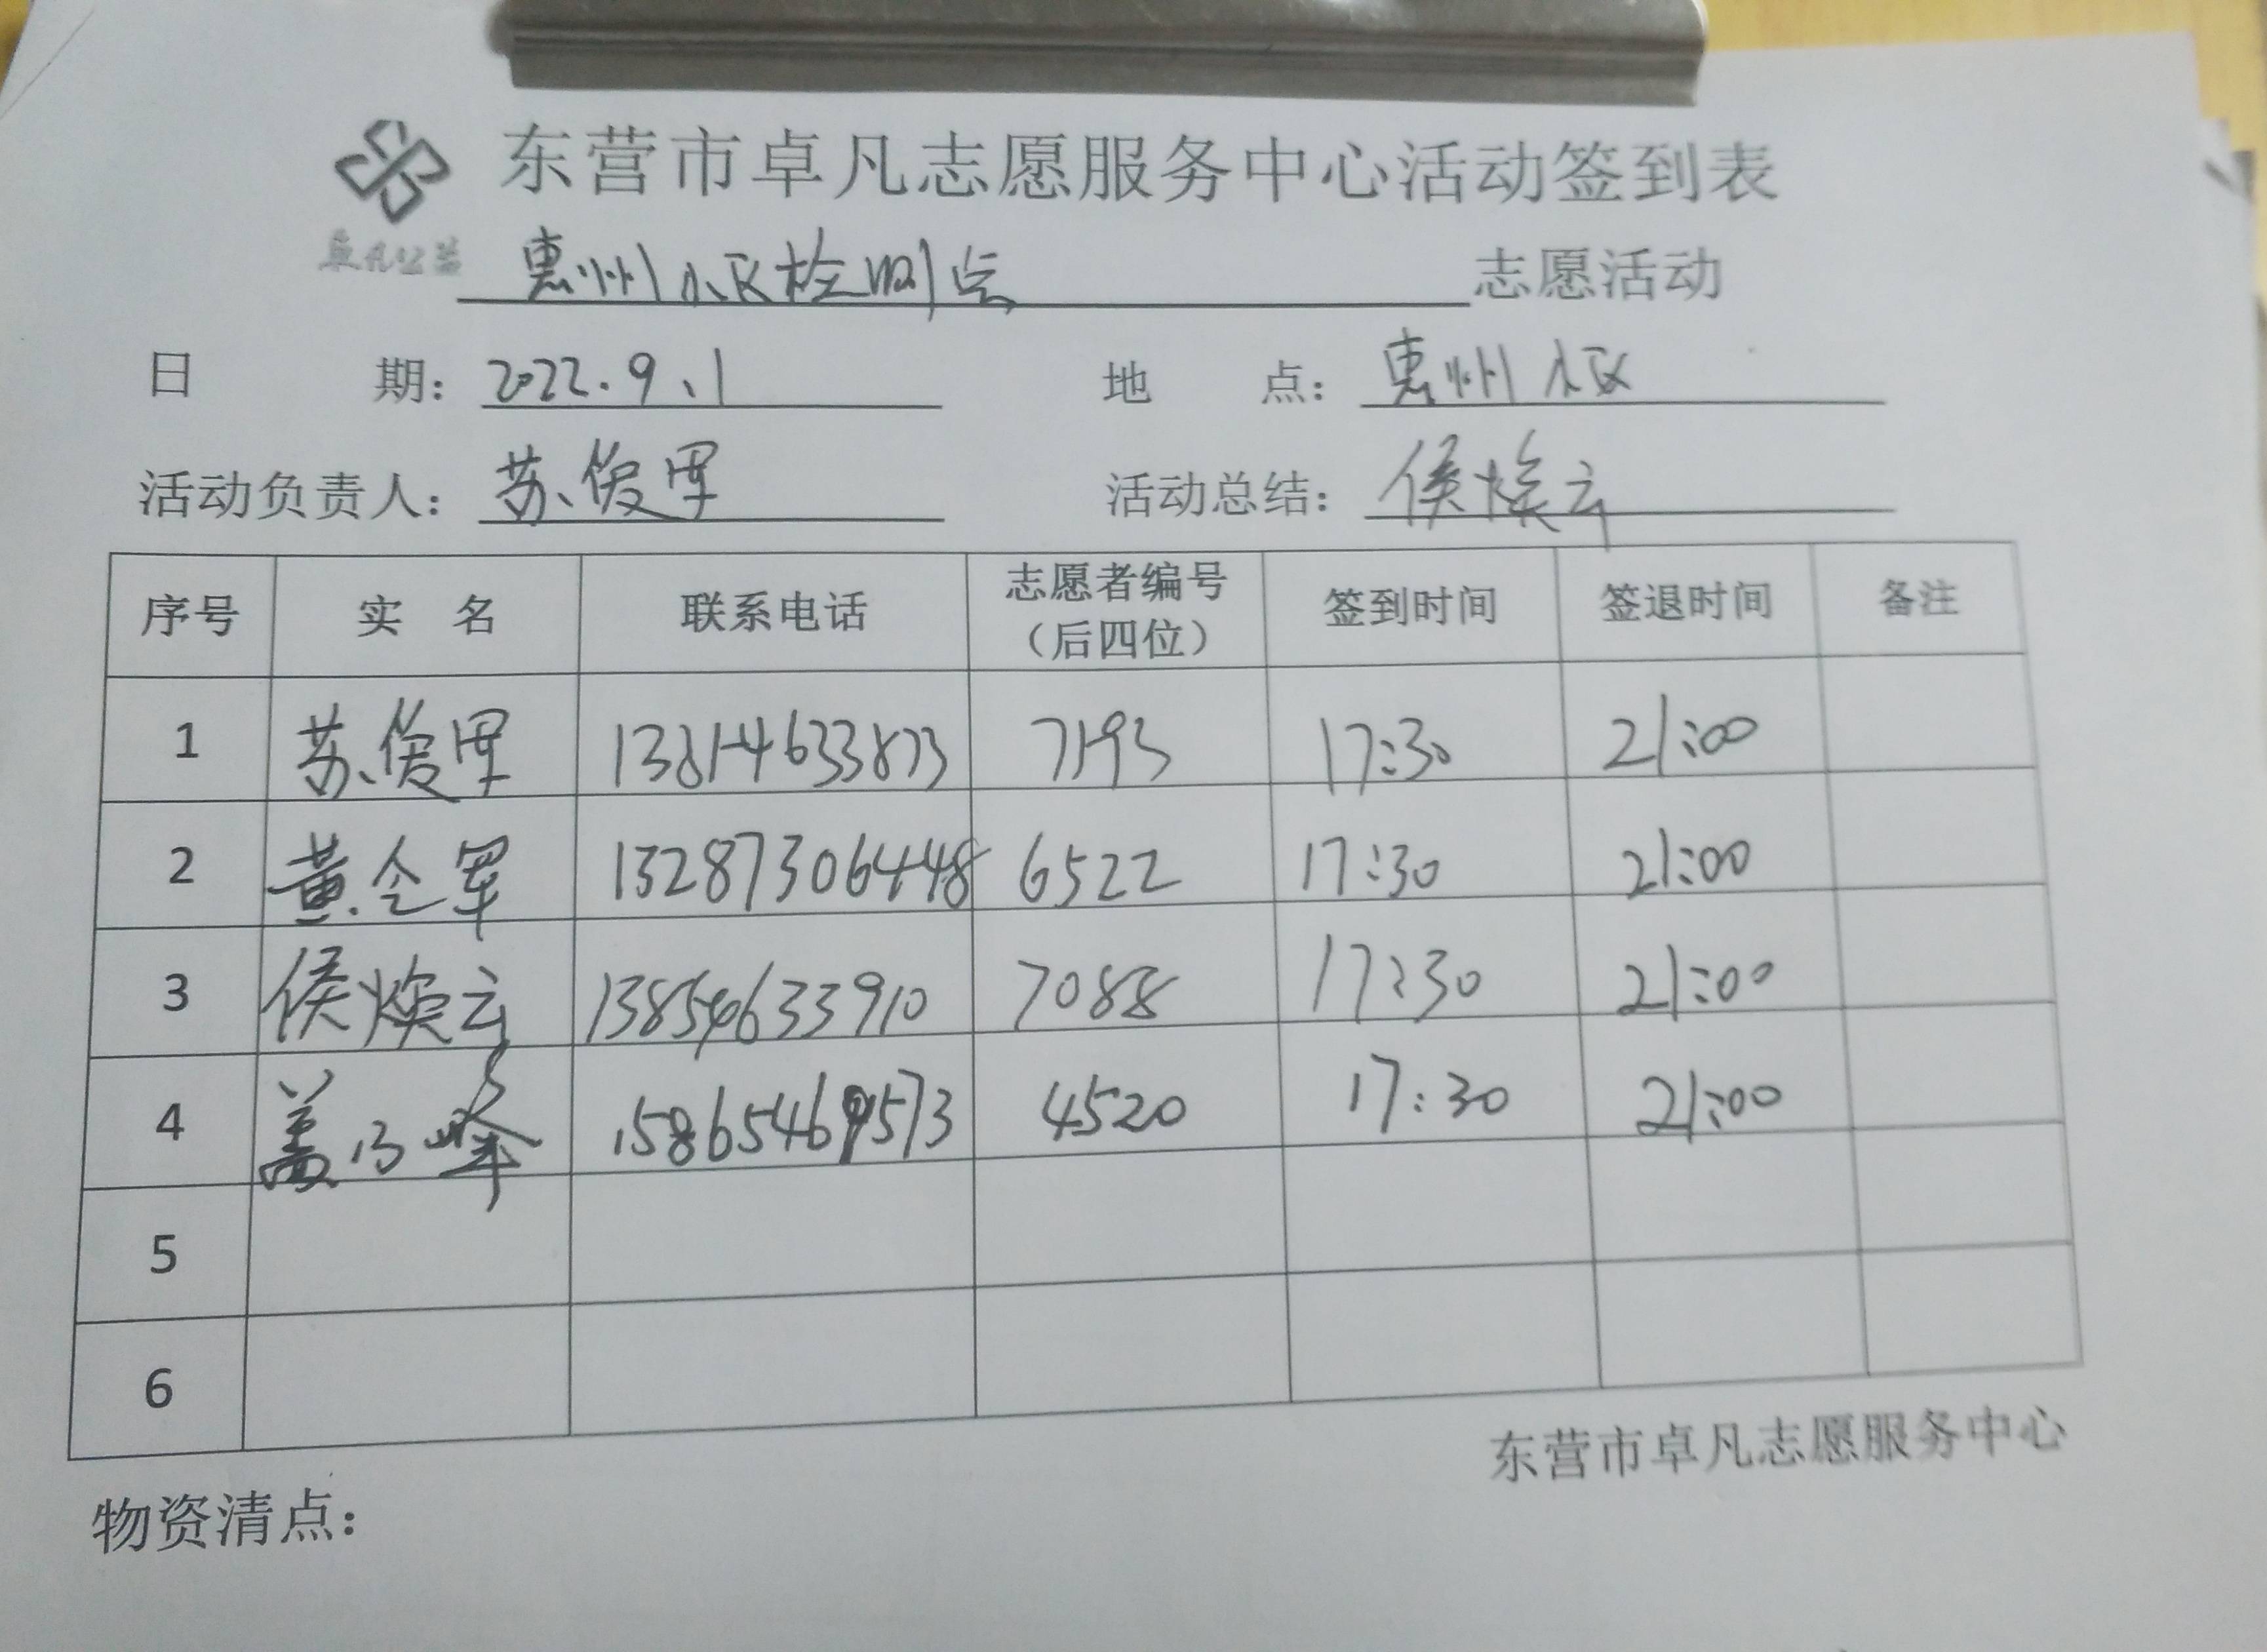 东营市卓凡志愿服务中心活动签到表
卓凡公益
惠州小区检测点志愿活动
日期：2022.9.1 地点：惠州小区
活动负责人：苏俊军 活动总结：侯焕云
序号 实名 联系电话 志愿者编号（后四位） 签到时间 签退时间 备注
1 苏俊军 13814633873 7193 17:30 21:00
2 黄全军 13287306448 6522 17:30 21:00
3 侯焕云 13854633910 7088 17:30 21:00
4 盖 峰 4520 17:30 21:00
5
6
东营市卓凡志愿服务中心
物资清点：